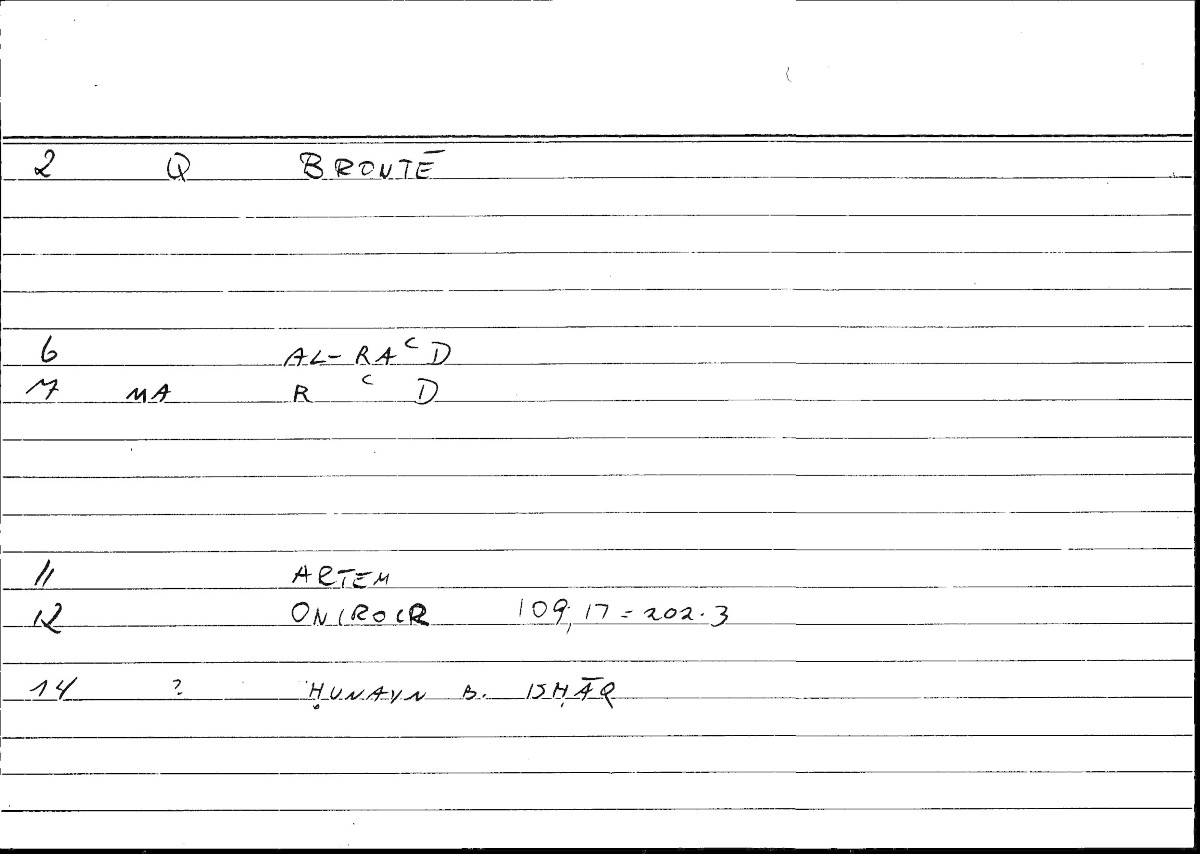 2 Q BRONTĒ
6 AL-RAᶜD
7 MA R ᶜ D
11 ARTEM
12 ONIROCR 109,17 = 202.3
14 ? ḤUNAYN B. ISḤĀQ